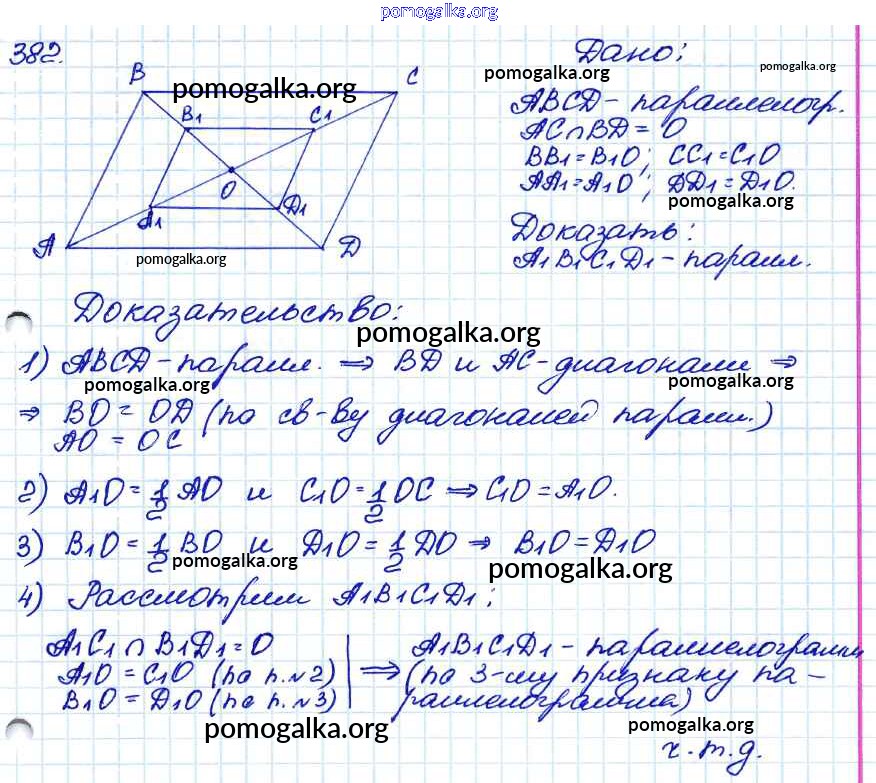 pomogalka.org
382.
B C
B1 C1
O
A1 D1
A D
pomogalka.org
pomogalka.org
Дано:
pomogalka.org
pomogalka.org
ABCD - параллелогр.
AC∩BD = O
BB1 = B1O; CC1 = C1O
AA1 = A1O; DD1 = D1O.
pomogalka.org
Доказать:
A1B1C1D1 - паралл.
Доказательство:
pomogalka.org
1) ABCD - паралл. ⇒ BD и AC - диагонали ⇒
pomogalka.org pomogalka.org
⇒ BO = OD (по св-ву диагоналей паралл.)
AO = OC
2) A1O = 1/2 AO и C1O = 1/2 OC ⇒ C1O = A1O.
3) B1O = 1/2 BO и D1O = 1/2 DO ⇒ B1O = D1O
pomogalka.org pomogalka.org
4) Рассмотрим A1B1C1D1:
A1C1 ∩ B1D1 = O
A1O = C1O (по п.№2)
B1O = D1O (по п.№3)
⇒ A1B1C1D1 - параллелограмм
(по 3-му признаку па-
раллелограмма)
pomogalka.org pomogalka.org
ч.т.д.